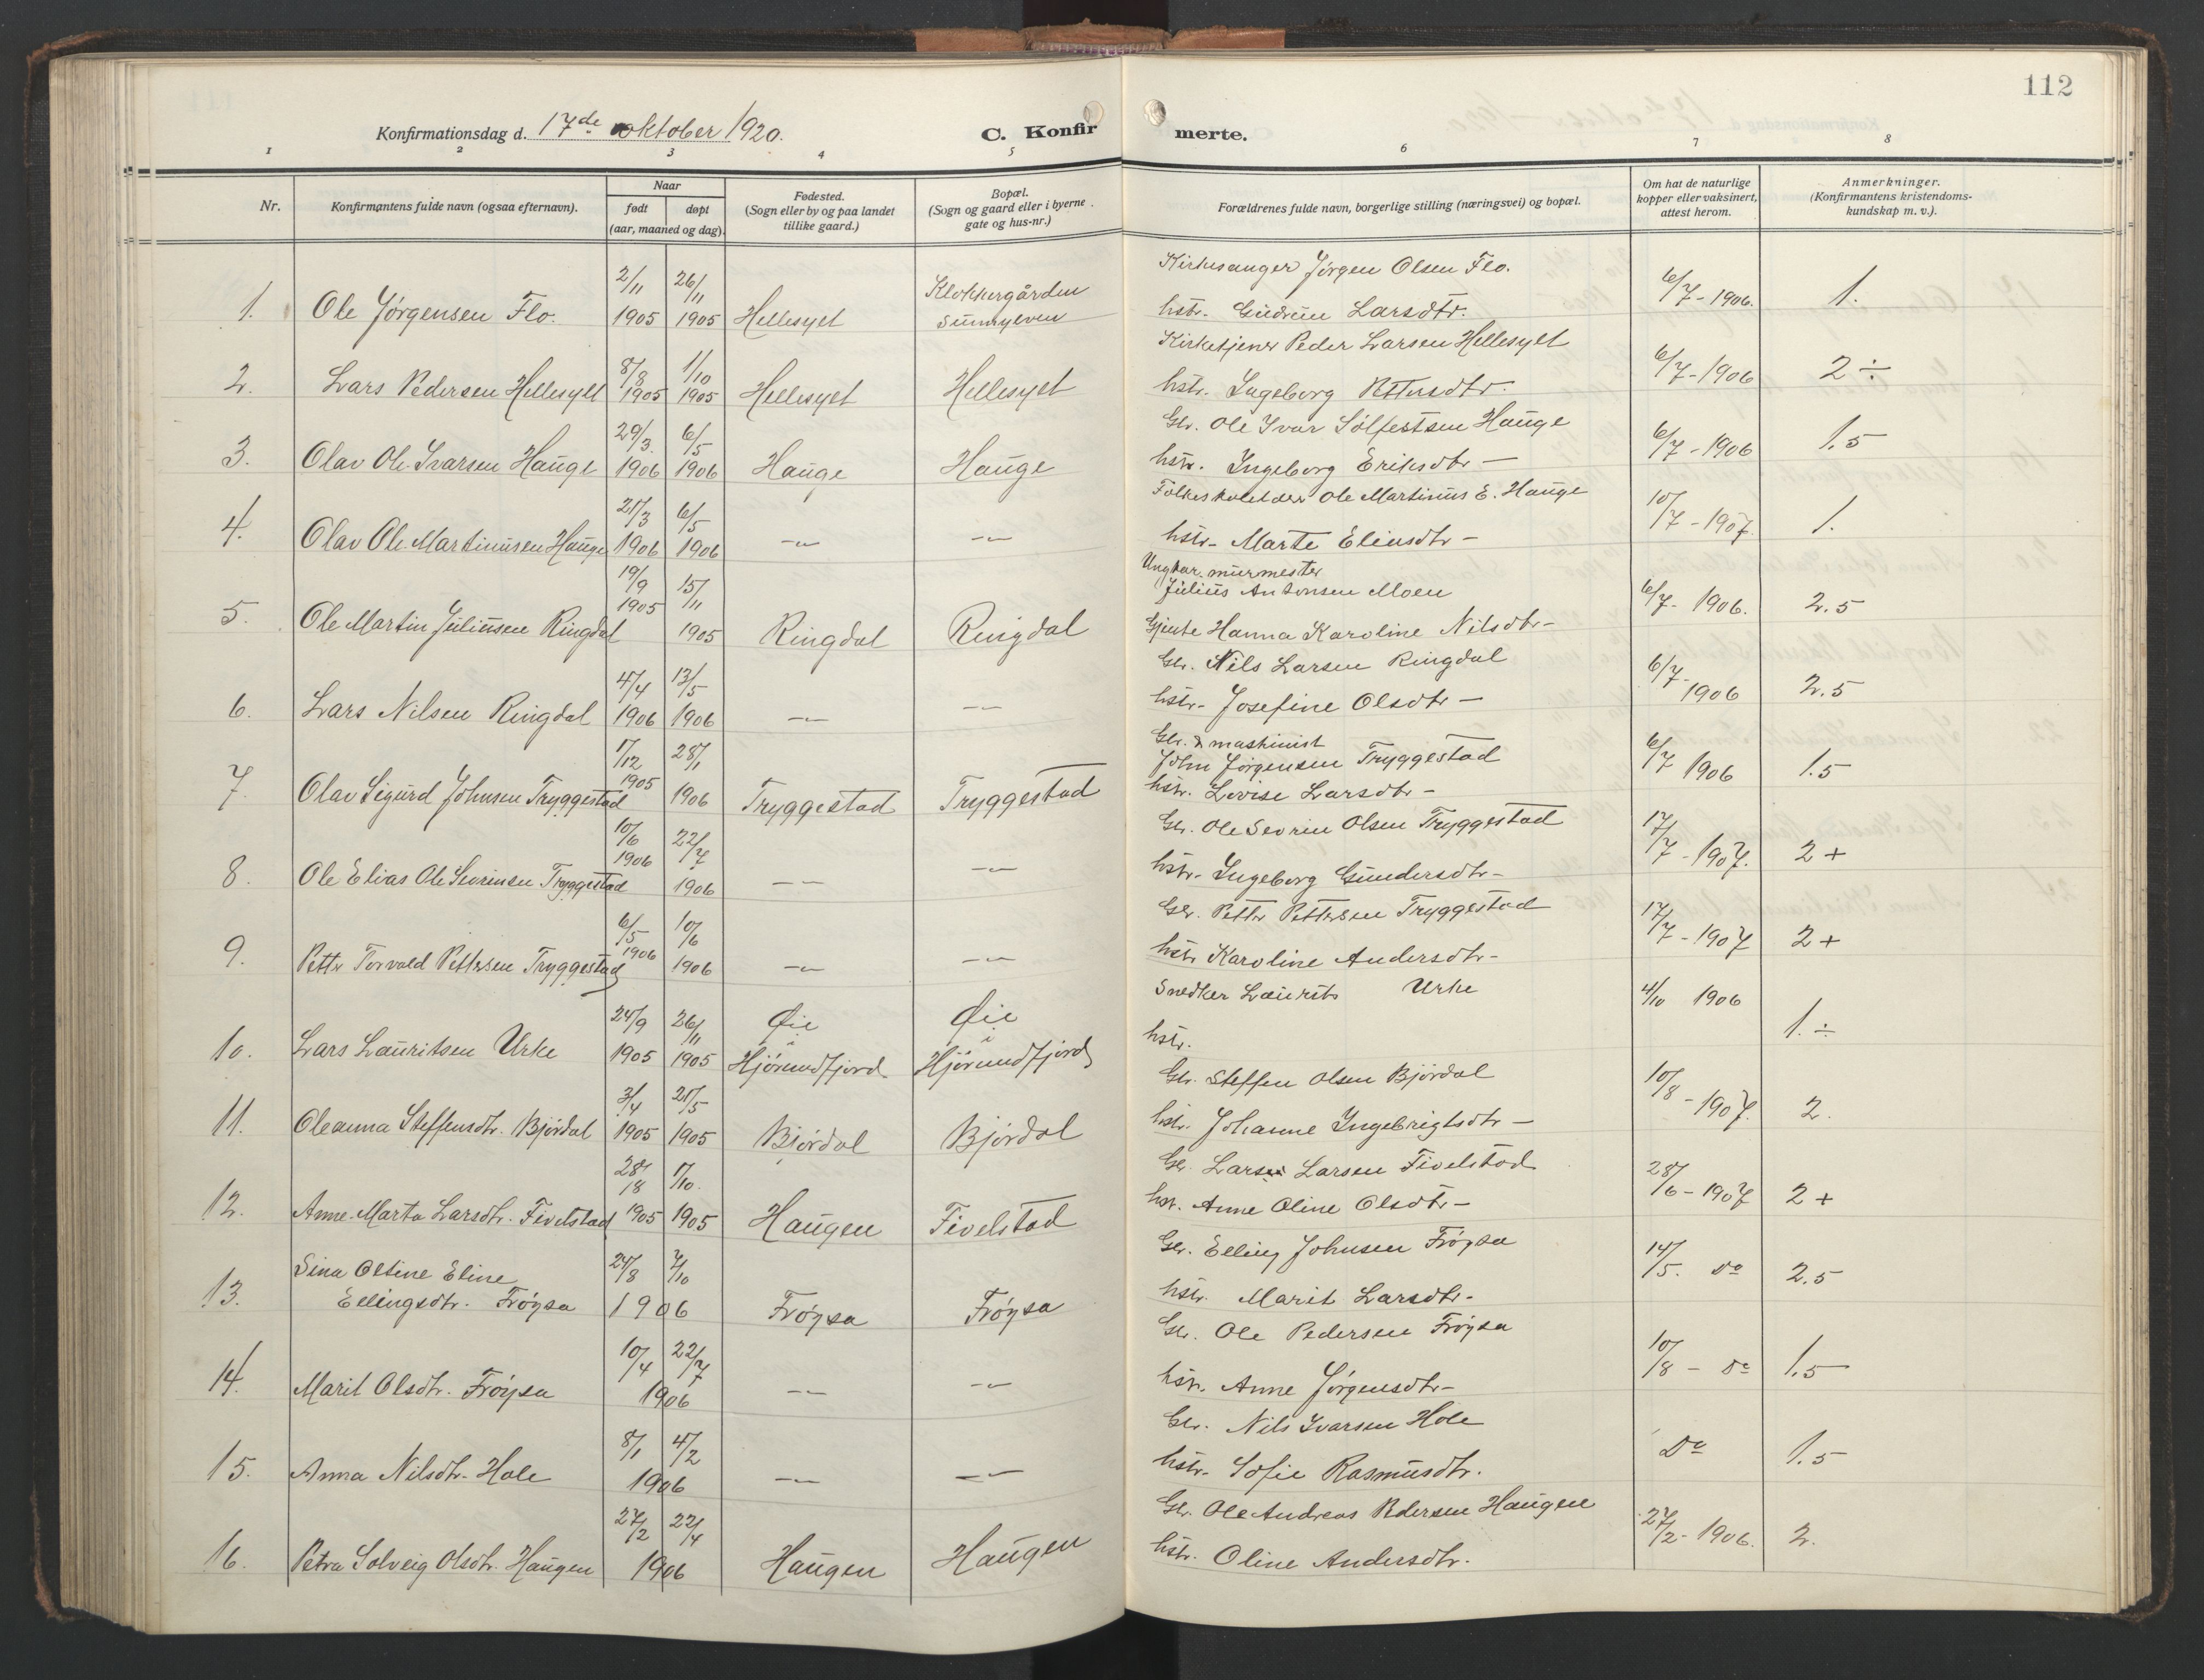 112
Konfirmationsdag d. 17de oktober 1920.
C. Konfirmerte.
1 2 3 4 5 6 7 8
Nr.
Konfirmantens fulde navn (ogsaa efternavn).
Naar
født
døpt
(aar, maaned og dag).
Fødested.
(Sogn eller by og paa landet
tillike gaard.)
Bopæl.
(Sogn og gaard eller i byerne
gate og hus-nr.)
Forældrenes fulde navn, borgerlige stilling (næringsvei) og bopæl.
Om hat de naturlige
kopper eller vaksinert,
attest herom.
Anmerkninger.
(Konfirmantens kristendoms-
kundskap m. v.).
1. Ole Jörgensen Flo. 2/11 1905 26/11 1905 Hellesylt Klokkergården Sunnylven
Kirkesanger Jörgen Olsen Flo.
hstr. Gudrun Larsdtr. 6/7-1906. 1.
2. Lars Pedersen Hellesylt 8/8 1905 1/10 1905 Hellesylt Hellesylt
Kirketjener Peder Larsen Hellesylt
hstr. Ingeborg Pettersdtr. 6/7-1906 2 ÷
3. Olav Ole Ivarsen Hauge 29/3. 1906 6/5 1906 Hauge Hauge
Gbr. Ole Ivar Sölfestsen Hauge
hstr. Ingeborg Eriksdtr — 6/7-1906 1.5
4. Olav Ole Martinusen Hauge 21/3 1906 6/5 1906 —"— —"—
Ole Martinus E. Hauge
hstr. Marte Eliasdtr — 10/7-1907. 1.
5. Ole Martin Juliussen Ringdal 19/9 1905 15/11 1905 Ringdal Ringdal
Ungkar. murmester
Julius Antonsen Moen
Gjente Hanna Karoline Nilsdtr — 6/7-1906. 2.5
6. Lars Nilsen Ringdal 4/4 1906 13/5 1906 —"— —"—
Gbr. Nils Larsen Ringdal
hstr. Josefine Olsdtr — 6/7-1906 2.5
7. Olav Sigurd Johnsen Tryggestad 1/12 1905 28/1 1906 Tryggestad Tryggestad
Gbr. & maskinist
John Jörgensen Tryggestad
hstr. Lovise Larsdtr — 6/7 1906 1.5
8. Ole Elias Ole Sevrinsen Tryggestad 10/6 1906 22/7 1906 —"— —"—
Gbr. Ole Sevrin Olsen Tryggestad
hstr. Ingeborg Gundersdtr — 17/7-1907. 2 +
9. Petter Torvald Pettersen Tryggestad 6/5 1906 10/6 1906 —"— —"—
Gbr. Petter Pettersen Tryggestad
hstr. Karoline Andersdtr — 17/7-1907 2 +
10. Lars Lauritsen Urke 24/9 1905 26/11 1905 Øie i Hjörundfjord Øie i Hjörundfjord
Snedker Laurits Urke
hstr. 4/10 1906 1. ÷
11. Oleanna Steffensdtr. Björdal 3/4 1905 21/5 1905 Björdal Björdal
Gbr. Steffen Olsen Björdal
hstr. Johanne Ingebrigtsdtr — 10/8-1907. 2.
12. Anne Marta Larsdtr. Fivelstad 28/8 1905 1/10. 1905 Haugen Fivelstad
Gbr. Lars Larsen Fivelstad
hstr. Anne Oline Olsdtr — 28/6-1907 2 +
13. Sina Oltine Eline
Ellingsdtr. Fröysa 24/8 7/10 1906 Fröysa Fröysa
Gbr. Elling Johnsen Fröysa
hstr. Marit Larsdtr. 14/5. do 2.5
14. Marit Olsdtr. Fröysa 10/4 22/7 1906 —"— —"—
Gbr. Ole Pedersen Fröysa
hstr. Anne Jörgensdtr — 10/8 - do 1.5
15. Anna Nilsdtr. Hole 8/1 4/2 1906 —"— —"—
Gbr. Nils Ivarsen Hole
hstr. Sofie Rasmusdtr. Do 1.5
16. Petra Solveig Olsdtr. Haugen 27/2 22/4 1906 Haugen Haugen
Gbr. Ole Andreas Pedersen Haugen
hstr. Oline Andersdtr. 27/2-1906. 2.